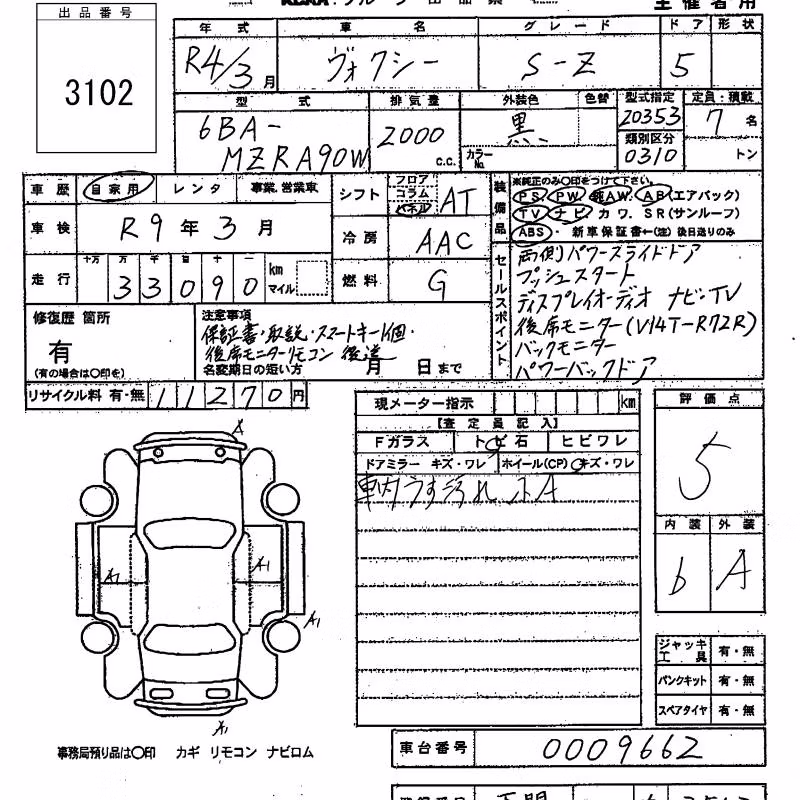 出品番号
3102
年式 車名 グレード ドア 形状
R4/3月 ヴォクシー S-Z 5
型式 排気量 外装色 色替 型式指定 定員・積載
6BA-MZRA90W 2000c.c. 黒 カラーNo. 20353 7名
類別区分 0310 トン
車歴 自家用 レンタ 事業、営業車
シフト フロア コラム パネル AT
車検 R9年3月
冷房 AAC
走行 十万 万 千 百 十 一 33090 km マイル
燃料 G
装備品 ※純正のみ〇印をつけて下さい。
PS PW 純AW AB(エアバック)
TV ナビ カワ. SR(サンルーフ)
ABS・新車保証書←(注)後日送りのみ
セールスポイント
両側パワースライドドア
プッシュスタート
ディスプレイオーディオ ナビ・TV
後席モニター(V14T-R72R)
バックモニター
パワーバックドア
修復歴 箇所
有
(有の場合は〇印を)
注意事項
保証書・取説・スマートキー1個・
後席モニターリモコン 後送
名変期日の短い方 月 日まで
リサイクル料 有・無 11270円
現メーター指示 km
【査定員記入】
Fガラス トビ石 ヒビワレ
ドアミラー キズ・ワレ ホイール(CP) キズ・ワレ
車内うす汚れ
評価点
5
内装 外装
b A
A
A1 A1
A1
A1
ジャッキ工具 有・無
パンクキット 有・無
スペアタイヤ 有・無
事務局預り品は〇印 カギ リモコン ナビロム
車台番号 0009662